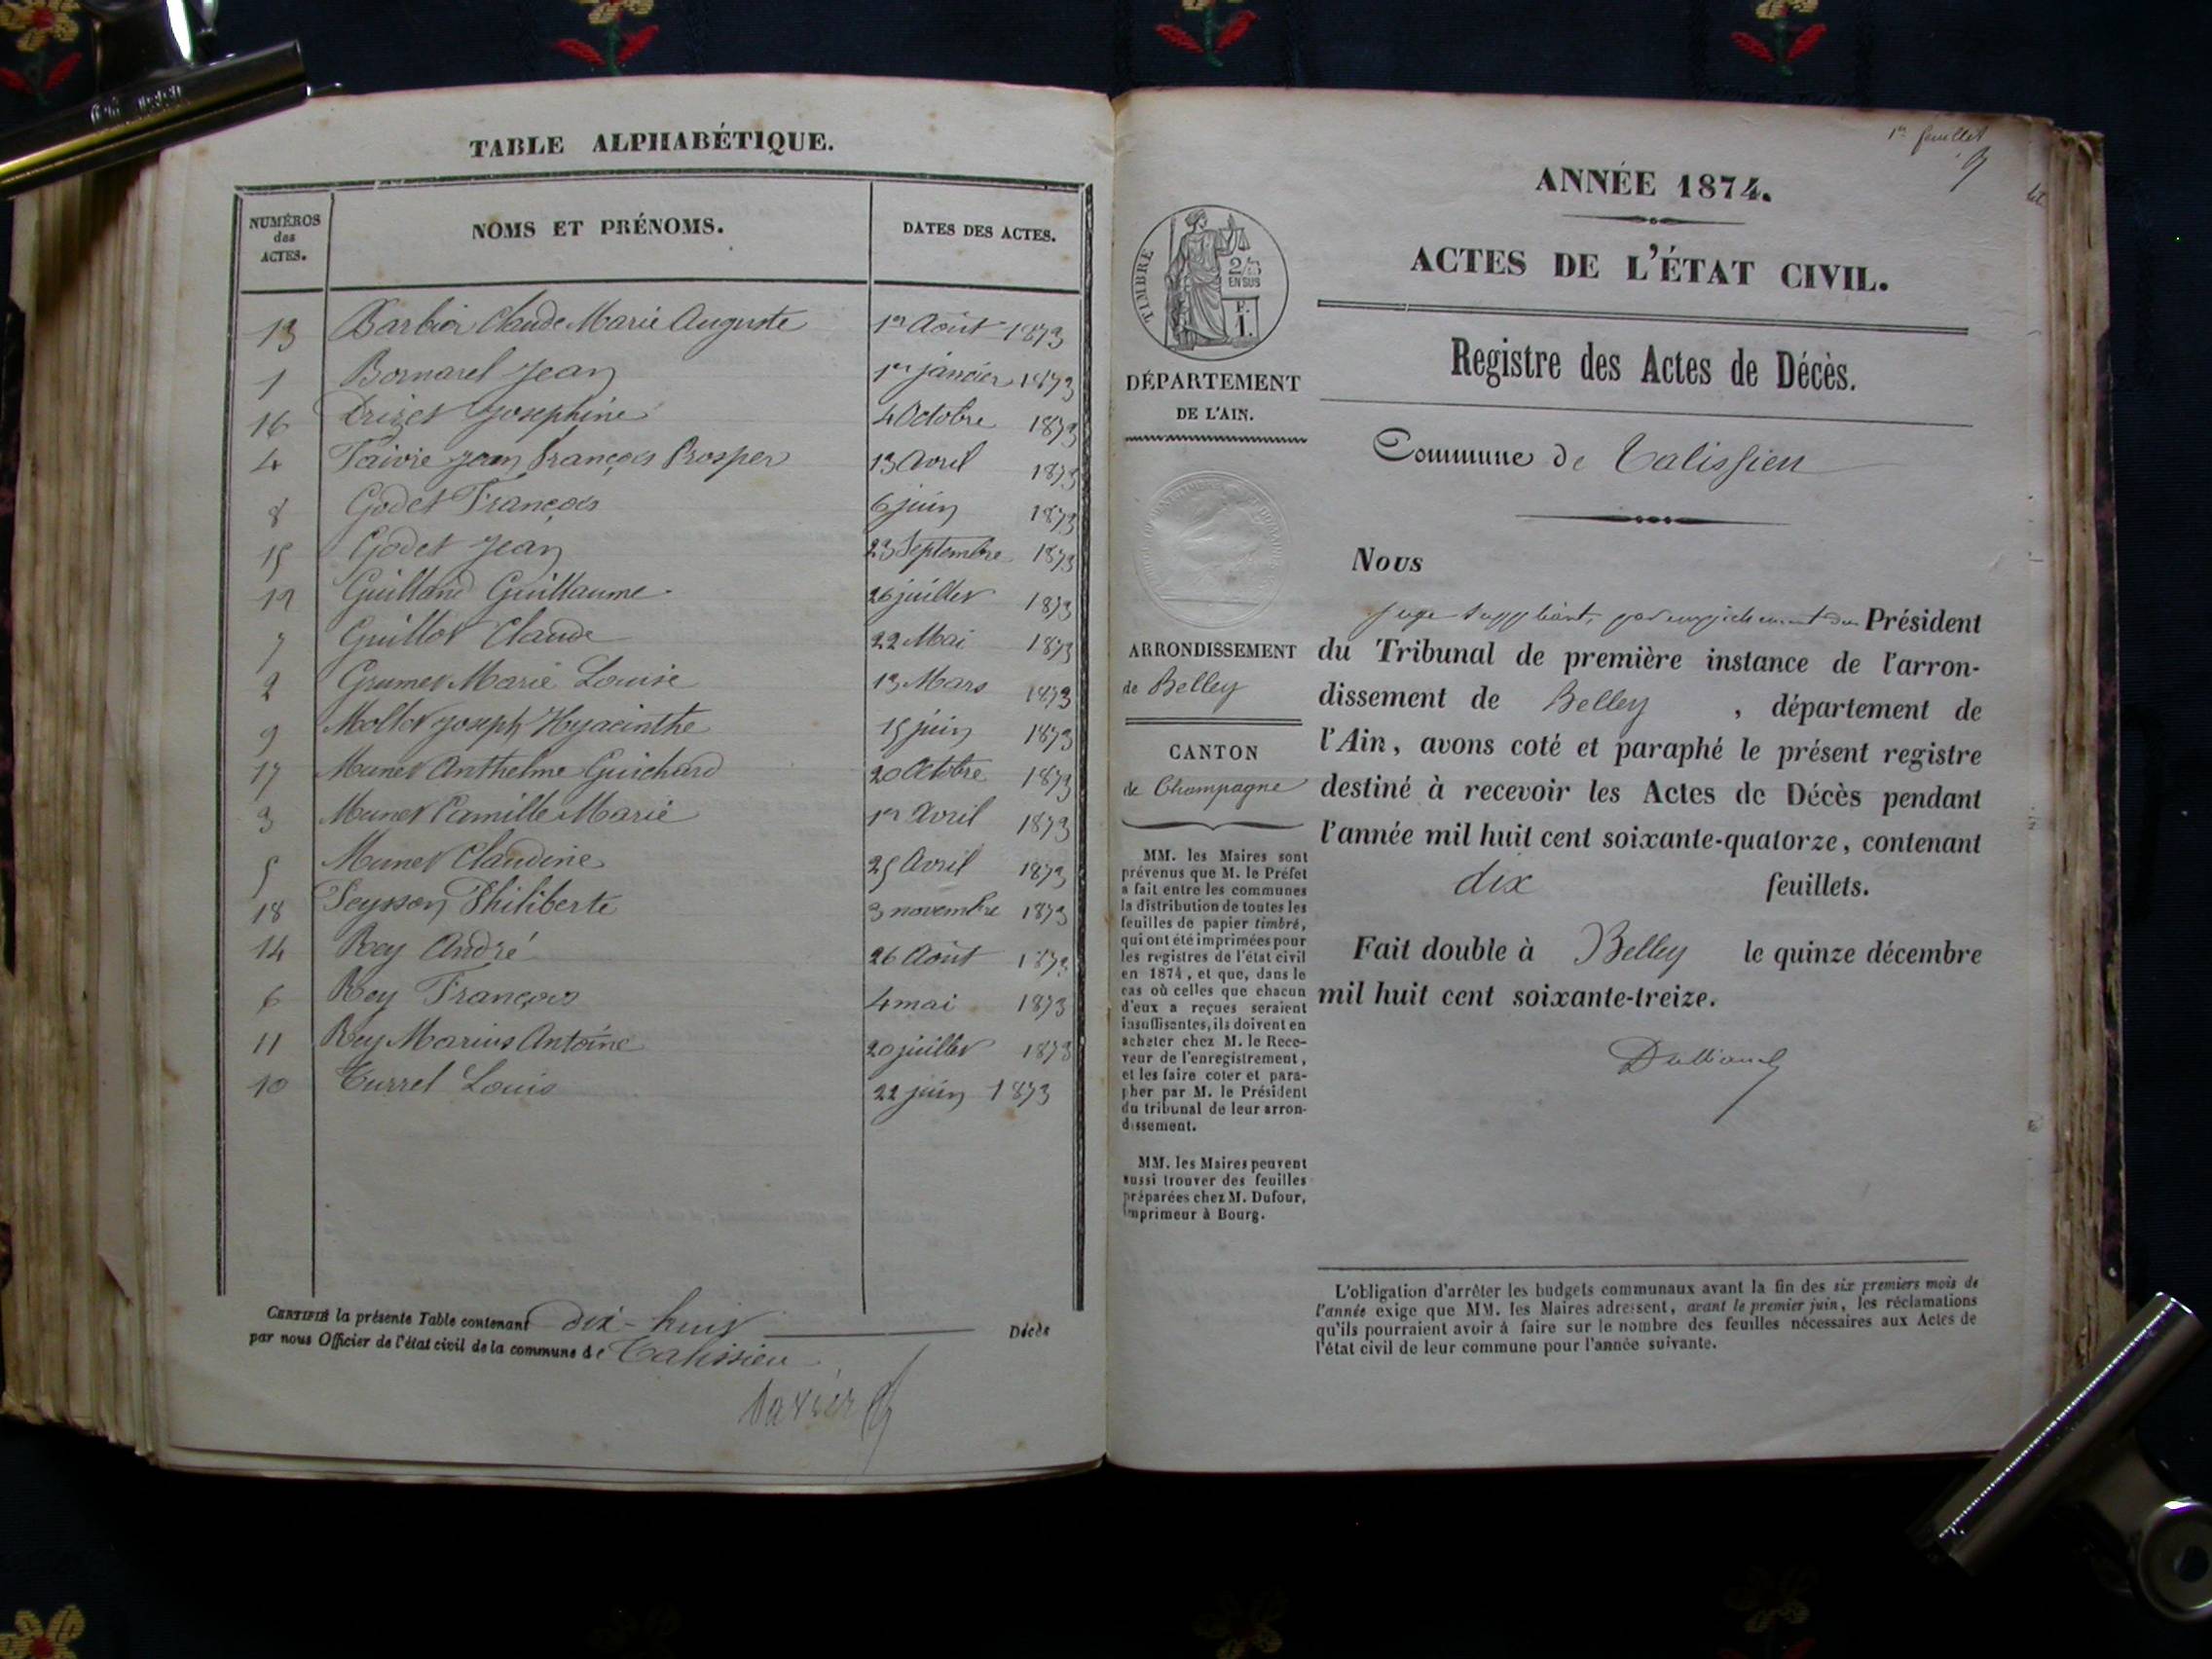 TABLE ALPHABÉTIQUE.
NUMÉROS
des
ACTES.
NOMS ET PRÉNOMS.
DATES DES ACTES.
13 Barbier Claude Marie Auguste 1er Août 1873
1 Bornarel Jean 1er janvier 1873
16 Drizet Josephine 4 Octobre 1873
4 Faivre Jean François Prosper 13 Avril 1873
8 Godet François 6 juin 1873
15 Godet Jean 23 Septembre 1873
12 Guilland Guillaume 26 juillet 1873
7 Guillot Claude 22 Mai 1873
2 Grumet Marie Louise 13 Mars 1873
9 Mollet Joseph Hyacinthe 15 juin 1873
17 Munet Anthelme Guichard 20 Octobre 1873
3 Munet Camille Marie 1er Avril 1873
5 Munet Claudine 25 Avril 1873
18 Peysson Philiberte 3 novembre 1873
14 Rey André 26 Août 1873
6 Rey François 4 mai 1873
11 Rey Marius Antoine 20 juillet 1873
10 Turrel Louis 22 juin 1873
CERTIFIÉ la présente Table contenant dix-huit Décès
par nous Officier de l'état civil de la commune de Talissieu
1er feuillet
ANNÉE 1874.
ACTES DE L'ÉTAT CIVIL.
Registre des Actes de Décès.
Commune de Talissieu
TIMBRE
2/10
EN SUS
F.
1.
DÉPARTEMENT
DE L'AIN.
ARRONDISSEMENT
de Belley
CANTON
de Champagne
MM. les Maires sont
prévenus que M. le Préfet
a fait entre les communes
la distribution de toutes les
feuilles de papier timbré,
qui ont été imprimées pour
les registres de l'état civil
en 1874, et que, dans le
cas où celles que chacun
d'eux a reçues seraient
insuffisantes, ils doivent en
acheter chez M. le Rece-
veur de l'enregistrement,
et les faire coter et para-
pher par M. le Président
du tribunal de leur arron-
dissement.
MM. les Maires peuvent
aussi trouver des feuilles
préparées chez M. Dufour,
imprimeur à Bourg.
Nous
juge suppléant, par empêchement du Président
du Tribunal de première instance de l'arron-
dissement de Belley , département de
l'Ain, avons coté et paraphé le présent registre
destiné à recevoir les Actes de Décès pendant
l'année mil huit cent soixante-quatorze, contenant
dix feuillets.
Fait double à Belley le quinze décembre
mil huit cent soixante-treize.
L'obligation d'arrêter les budgets communaux avant la fin des six premiers mois de
l'année exige que MM. les Maires adressent, avant le premier juin, les réclamations
qu'ils pourraient avoir à faire sur le nombre des feuilles nécessaires aux Actes de
l'état civil de leur commune pour l'année suivante.